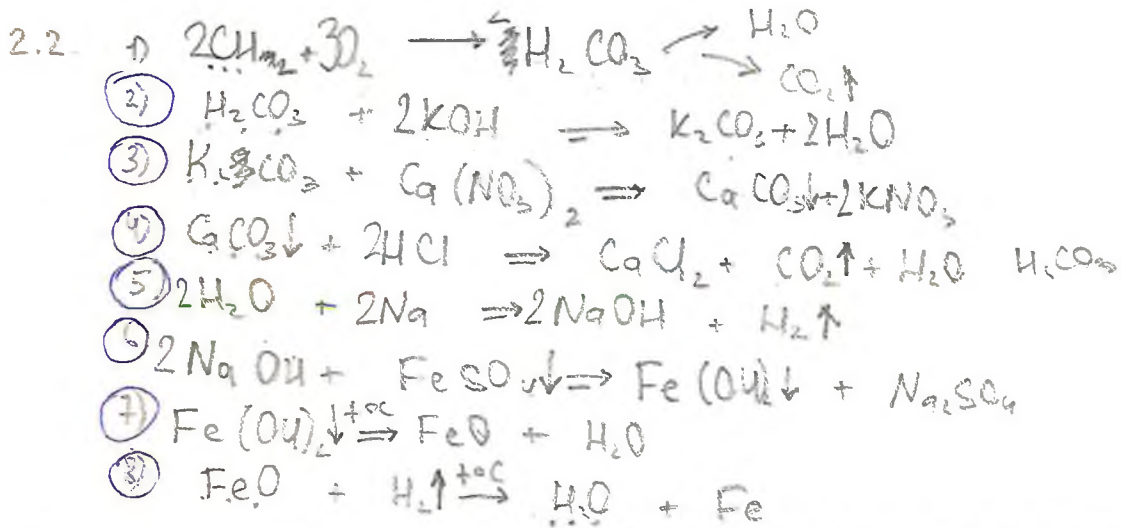 2.2 1) 2CH₂ + 3O₂ → H₂CO₃ → H₂O
CO₂↑
2) H₂CO₃ + 2KOH ⇒ K₂CO₃ + 2H₂O
3) K₂CO₃ + Ca(NO₃)₂ ⇒ CaCO₃↓ + 2KNO₃
4) CaCO₃↓ + 2HCl ⇒ CaCl₂ + CO₂↑ + H₂O H₂CO₃
5) 2H₂O + 2Na ⇒ 2NaOH + H₂↑
6) 2NaOH + FeSO₄↓ ⇒ Fe(OH)₂↓ + Na₂SO₄
7) Fe(OH)₂↓ +°C ⇒ FeO + H₂O
8) FeO + H₂↑ +°C → H₂O + Fe